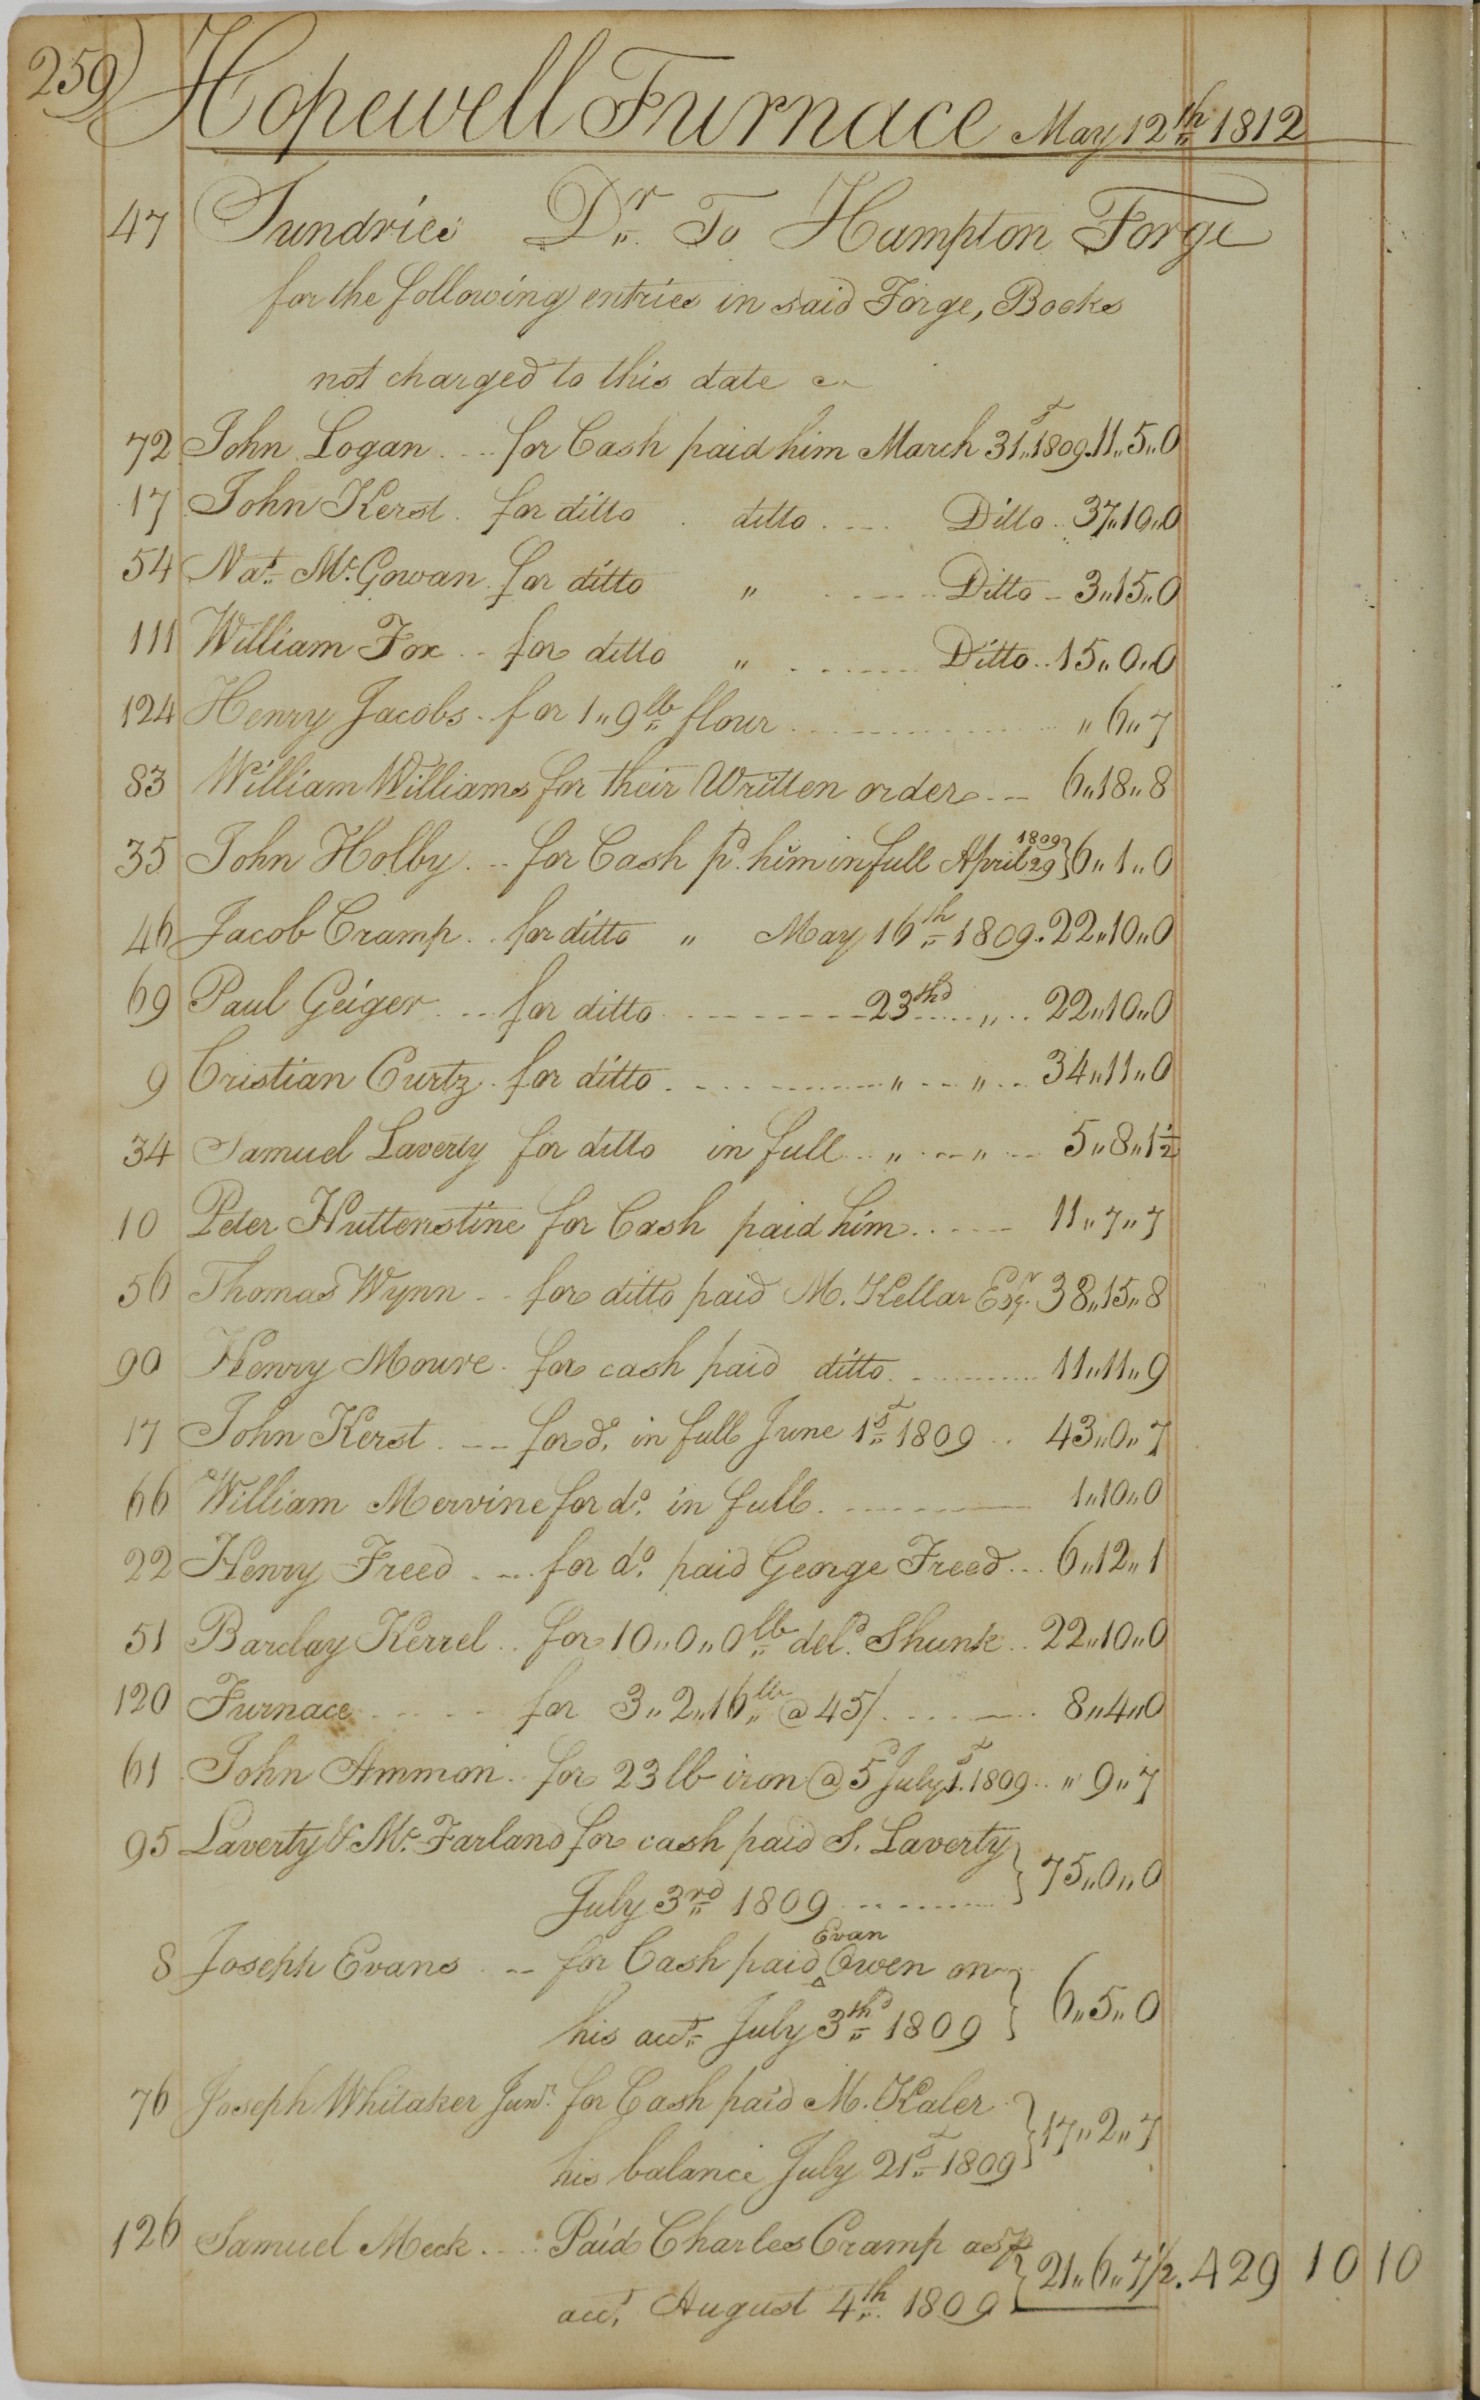 259
Hopewell Furnace May 12th 1812
47 Sundries Dr To Hampton Forge
for the following entries in said Forge, Books
not charged to this date
72 John Logan for Cash paid him March 31st 1809 11„5„0
17 John Kerst for ditto ditto Ditto 37„10„0
54 Nat. Mc.Gowan for ditto „ Ditto 3„15„0
111 William Fox for ditto „ Ditto 15„0„0
124 Henry Jacobs for 1„9lb flour „6„7
83 William Williams for their Written orders 6„18„8
35 John Holby for Cash pd. him in full April 29 1809 } 6„1„0
46 Jacob Cramp for ditto „ May 16th 1809 22„10„0
69 Paul Geiger for ditto 23thd „ 22„10„0
9 Cristian Curtz for ditto „ „ 34„11„0
34 Samuel Laverty for ditto in full „ „ 5„8„1½
10 Peter Huttenstine for Cash paid him 11„7„7
56 Thomas Wynn for ditto paid M. Kellar Esqr. 38„15„8
90 Henry Moure for cash paid ditto 11„11„9
17 John Kerst for do. in full June 1st 1809 43„0„7
66 William Mervine for do. in full 1„10„0
22 Henry Freed for do. paid George Freed 6„12„1
51 Barclay Kerrel for 10„0„0lb deld. Shunk 22„10„0
120 Furnace for 3„2„16lb @ 45/ 8„4„0
61 John Ammon for 23 lb iron @ 5d July 1st 1809 „9„7
95 Laverty & Mc.Farland for cash paid S. Laverty
July 3rd 1809 } 75„0„0
8 Joseph Evans for Cash paid Evan Owen on
his acct. July 3thd 1809 } 6„5„0
76 Joseph Whitaker Junr. for Cash paid M. Kaler
his balance July 21st 1809 } 17„2„7
126 Samuel Meck Paid Charles Cramp as pr
acct. August 4th 1809 } 21„6„7½. 429 10 10